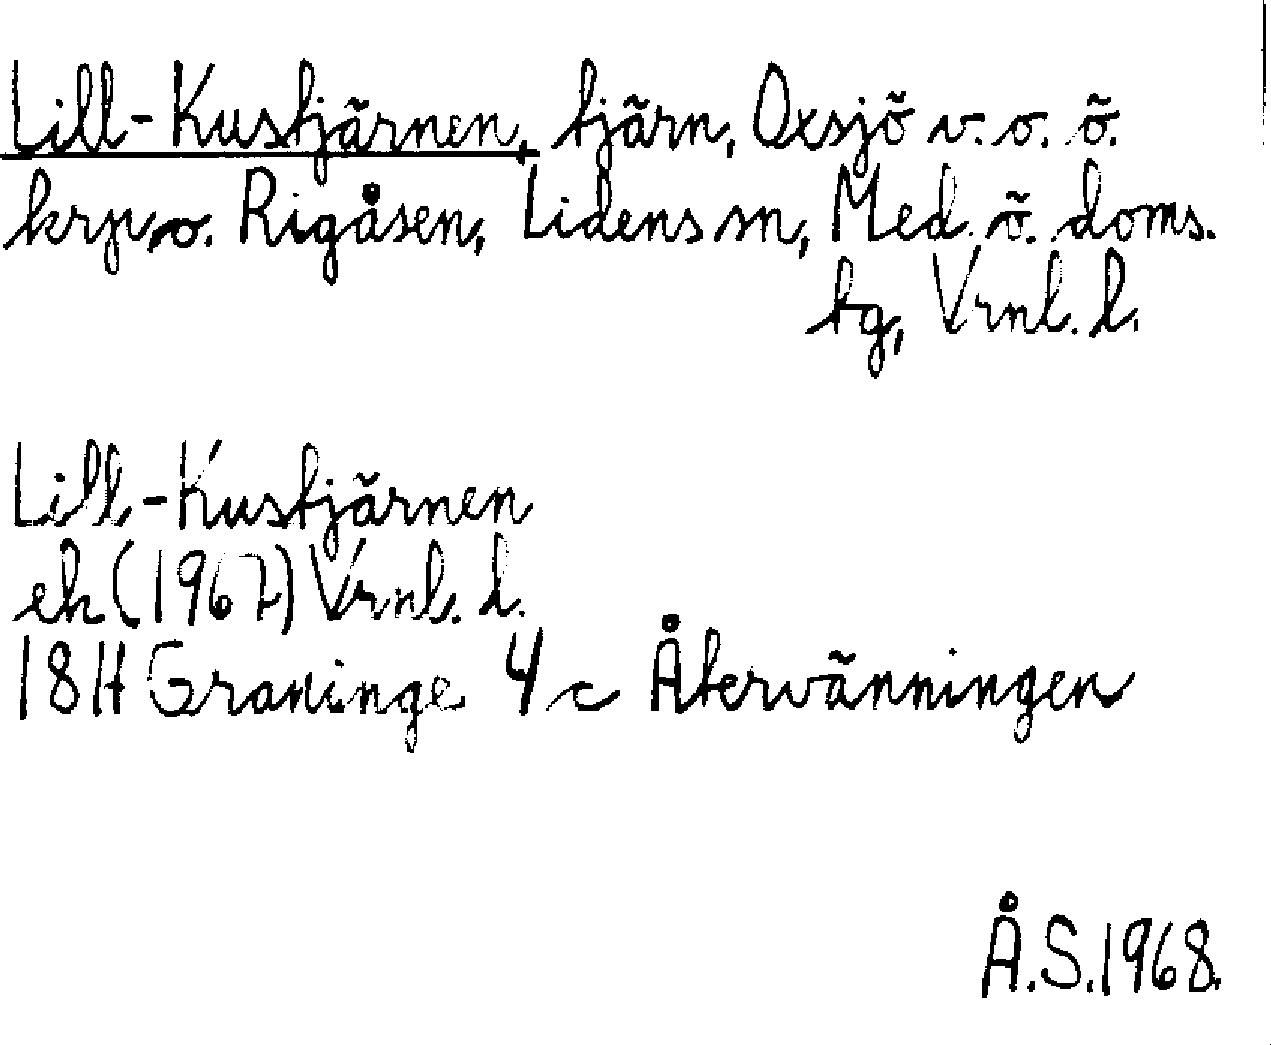 Lill-Kustjärnen, tjärn, Oxsjö v. o. ö.
krp. o. Rigåsen, Lidens sn, Med. ö. doms.
tg, Vrnl. l.
Lill-Kustjärnen
ek (1967) Vrnl. l.
18H Graninge 4 c Återvänningen
Å.S. 1968.